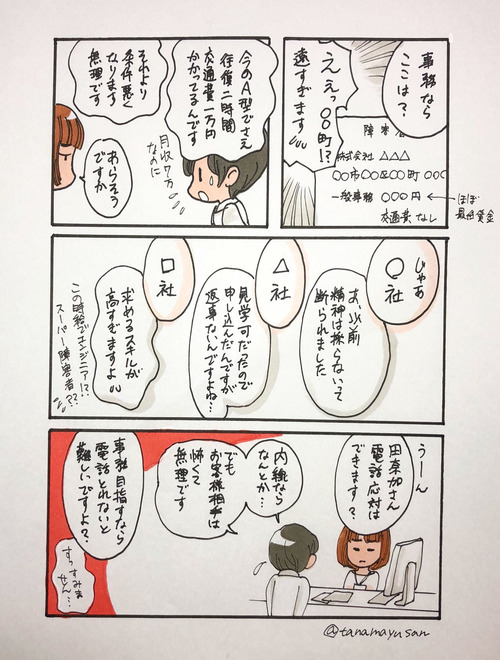 事務なら
ここは?
えぇっ
〇〇町!?
遠すぎます
障害者
株式会社 △△△
〇〇市〇〇区〇〇町 〇〇〇
一般事務 〇〇〇円
交通費なし
ほぼ
最低賃金
今のA型でさえ
往復二時間
交通費一万円
かかってるんです
月収7万
なのに
それより
条件悪く
なります
無理です
あらそう
ですか
じゃあ
〇社
お、以前
精神は採らないって
断られました
△社
見学可だったので
申し込んだんですが
返事ないんですよね…
□社
求めるスキルが
高すぎますよ
この時給でエンジニア!?
スーパー障害者??
うーん
田奈加さん
電話応対は
できます?
内線なら
なんとか…
でも
お客様相手は
怖くて
無理です
事務目指すなら
電話とれないと
難しいですよ?
すっすみま
せん…
@tanamayusan